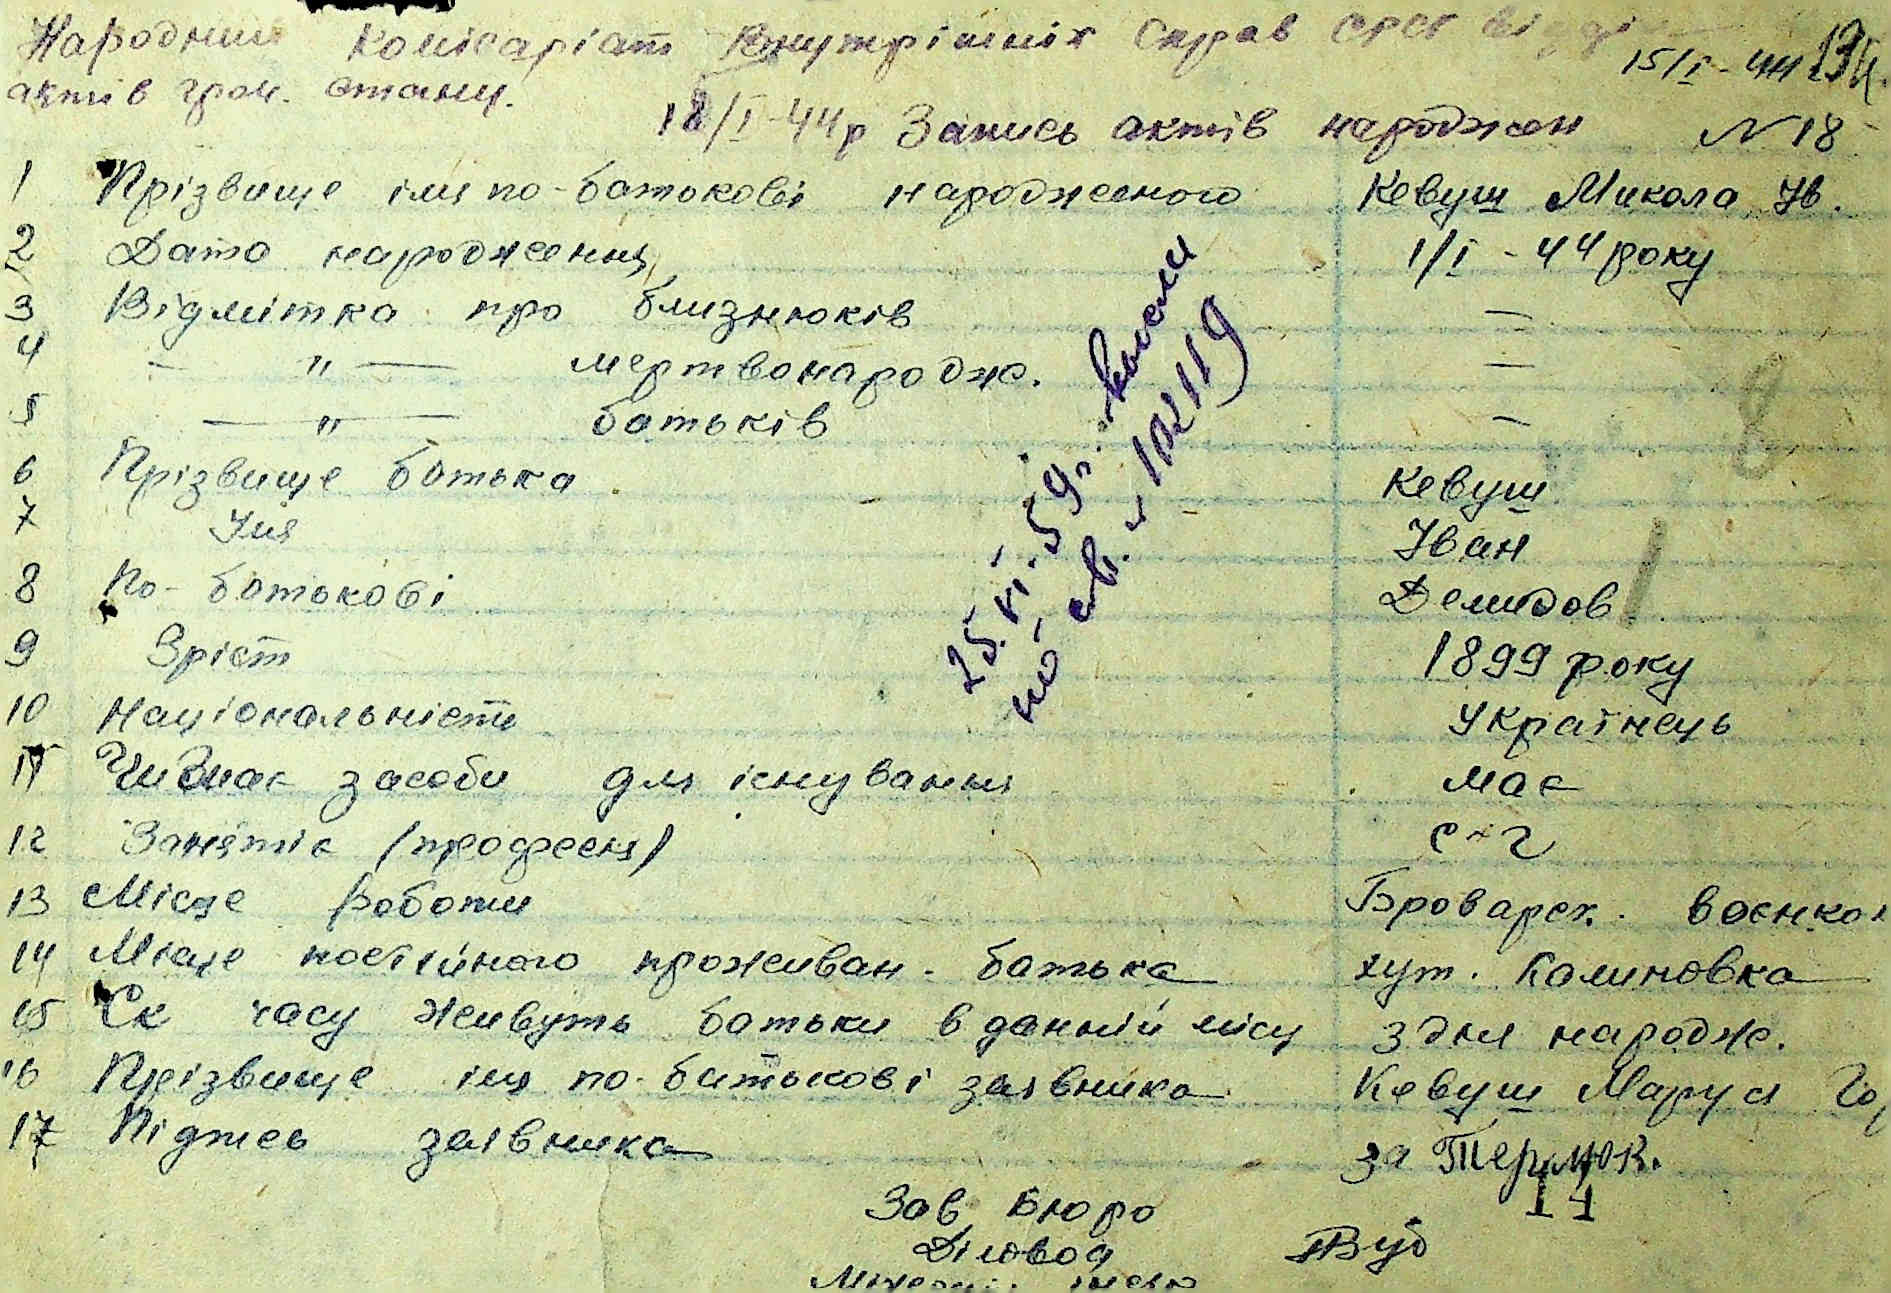 Народний Комісаріат Внутрішніх Справ СРСР відділ
актів гром. стану.
15/I-44
18/I-44р Запись актів народжен N 18
1 Прізвище імя по-батькові народженого Кевуш Микола Ів.
2 Дата народження 1/I-44 року
3 Відмітка про близнюків —
4 — " — мертвонародж. —
5 — " — батьків —
6 Прізвище батька Кевуш
7 Імя Іван
8 По-батькові Демидов
9 Зріст 1899 року
10 Національність Українець
11 Чи має засоби для існування має
12 Заняттіє /професія/ с-г
13 Місце роботи Броварск. воєнком
14 Місце постійного проживан. батька хут. Калиновка
15 Ск часу живуть батьки в данній місц з дня народж.
16 Прізвище імя по-батькові заявника Кевуш Маруся Го
17 Підпсь заявника за
Зав. Бюро
Діловод
25.VI.59р.
св.